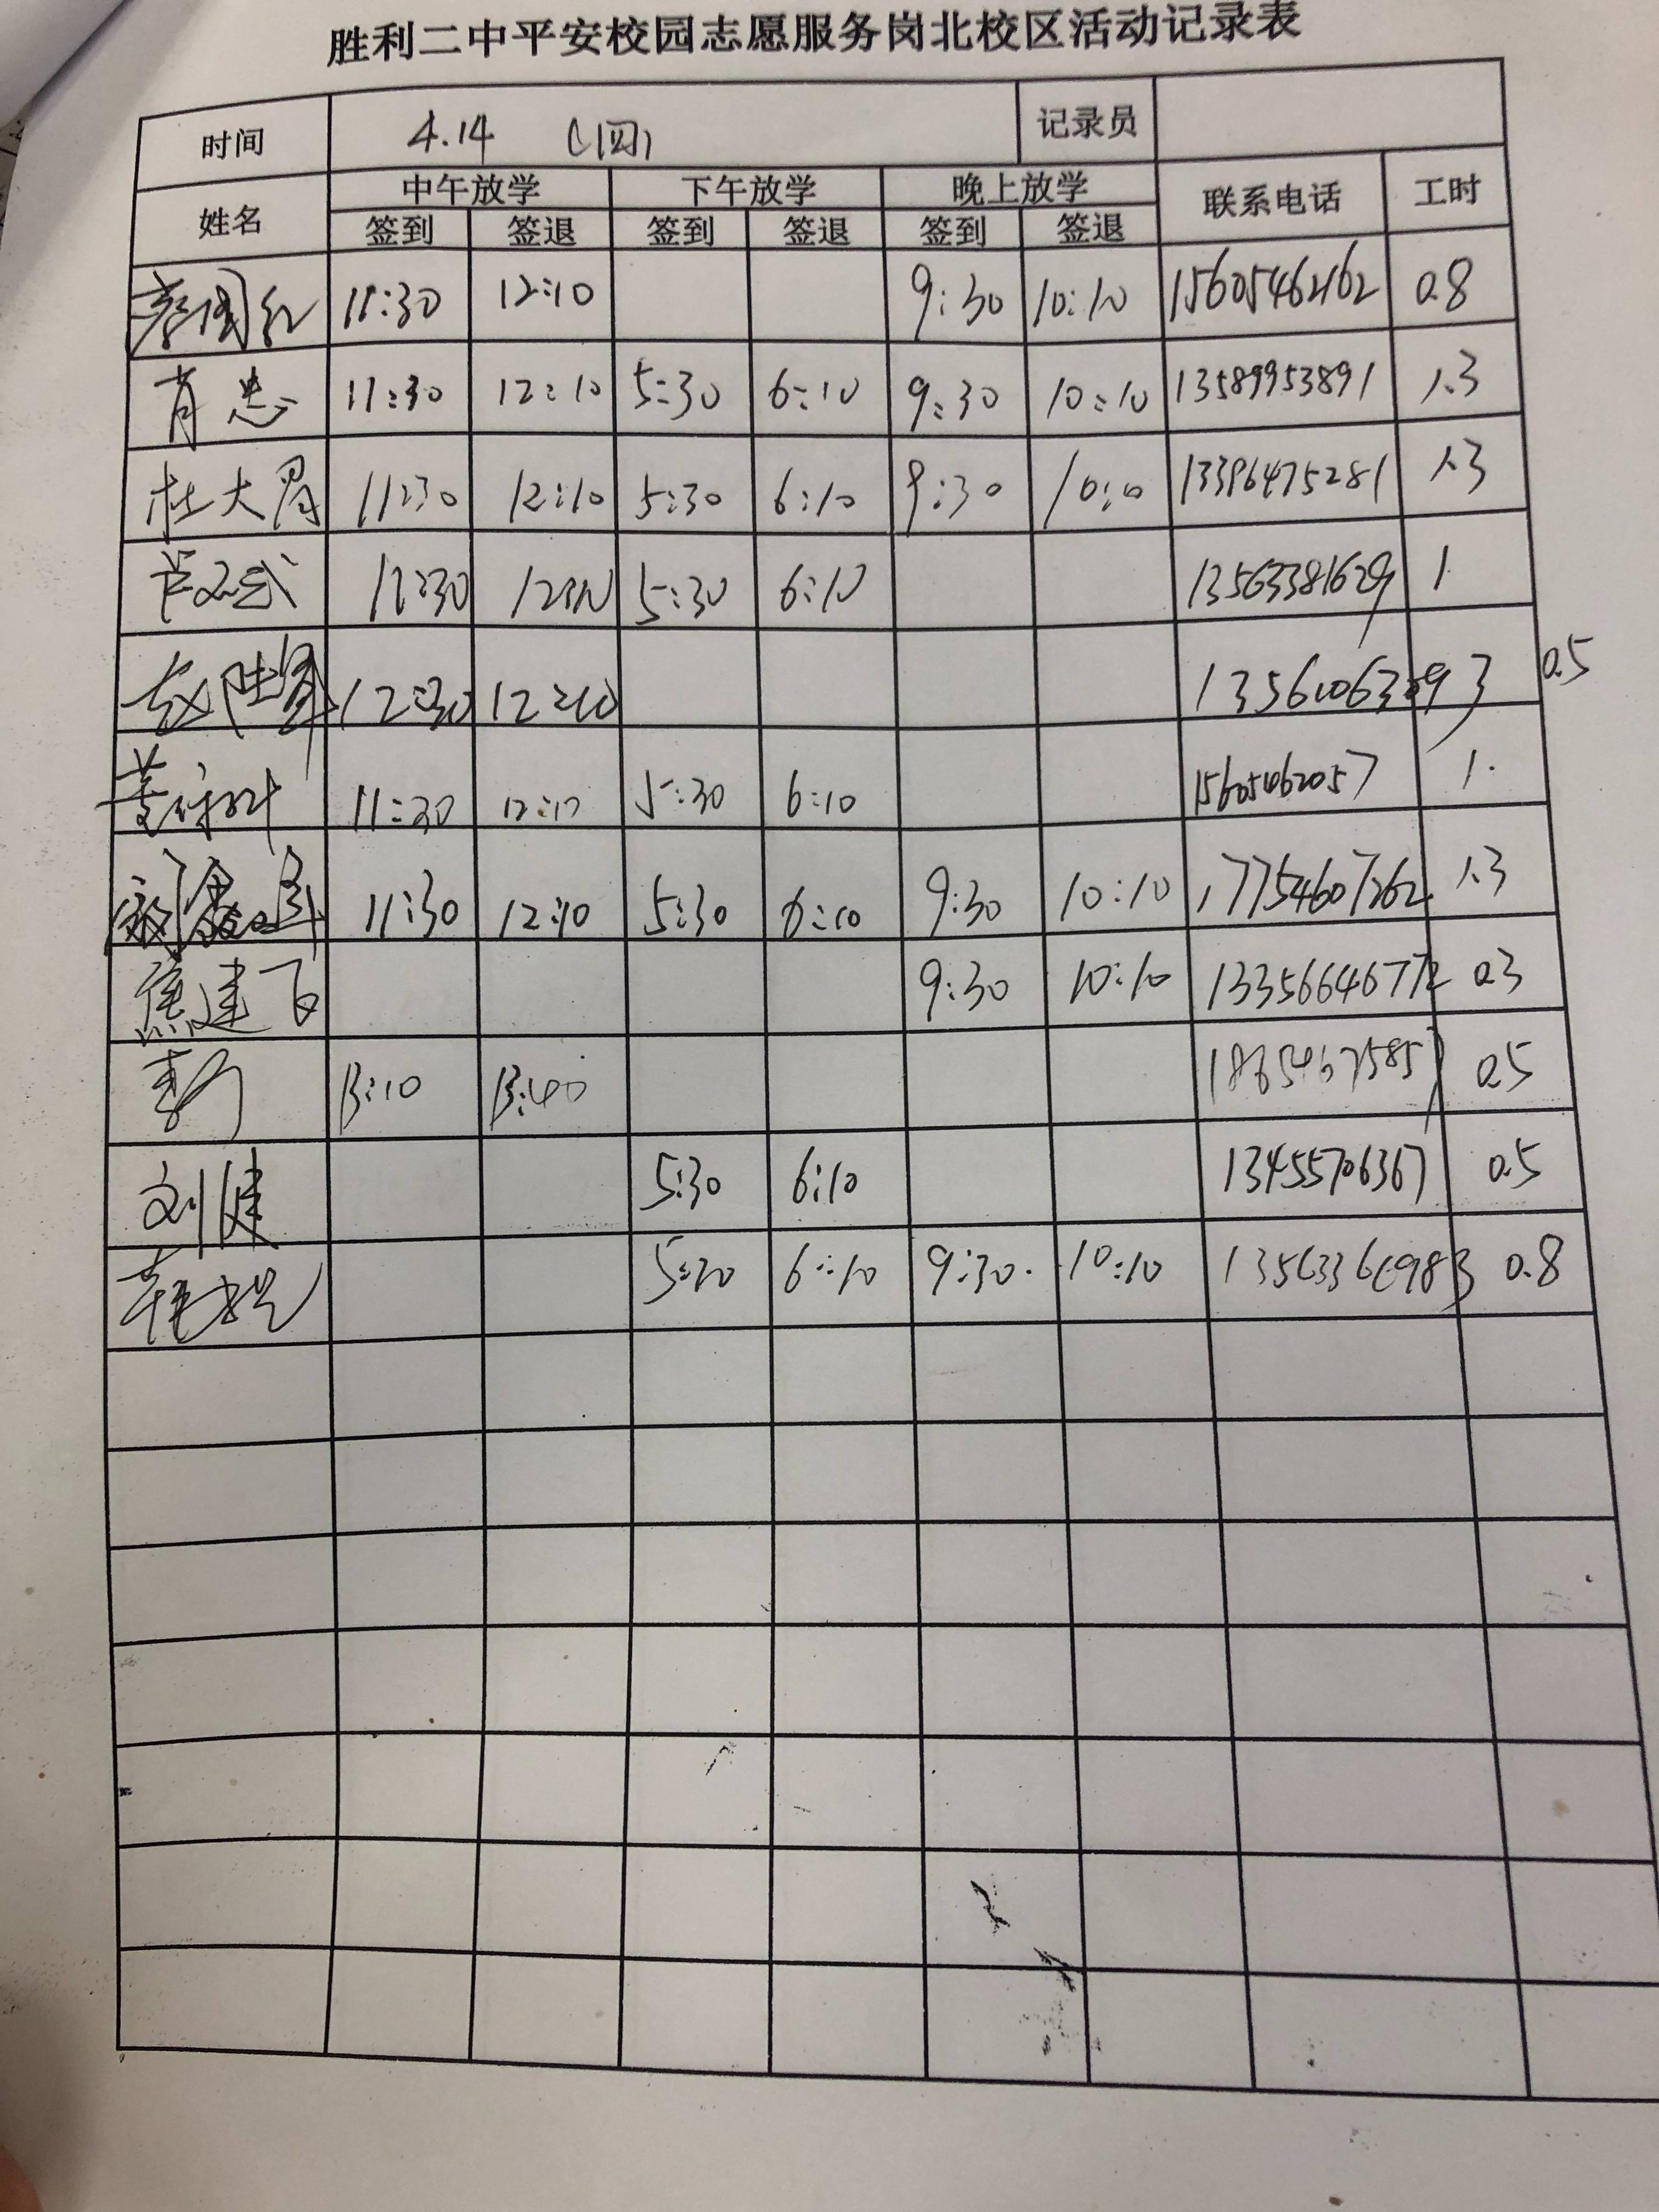 胜利二中平安校园志愿服务岗北校区活动记录表
时间 4.14 (四) 记录员
姓名 中午放学 下午放学 晚上放学 联系电话 工时
签到 签退 签到 签退 签到 签退
11:30 12:10 9:30 10:10 15605462162 0.8
肖忠 11:30 12:10 5:30 6:10 9:30 10:10 13589953891 1.3
杜大眉 11:30 12:10 5:30 6:10 9:30 10:10 13396475281 1.3
11:30 12:10 5:30 6:10 13563381629 1
12:30 12:10 0.5
11:30 12:10 5:30 6:10 15605462057 1.
11:30 12:10 5:30 6:10 9:30 10:10 17754607262 1.3
焦建飞 9:30 10:10 13356646772 0.3
13:10 13:40 0.5
刘健 5:30 6:10 13455706367 0.5
5:30 6:10 9:30 10:10 0.8